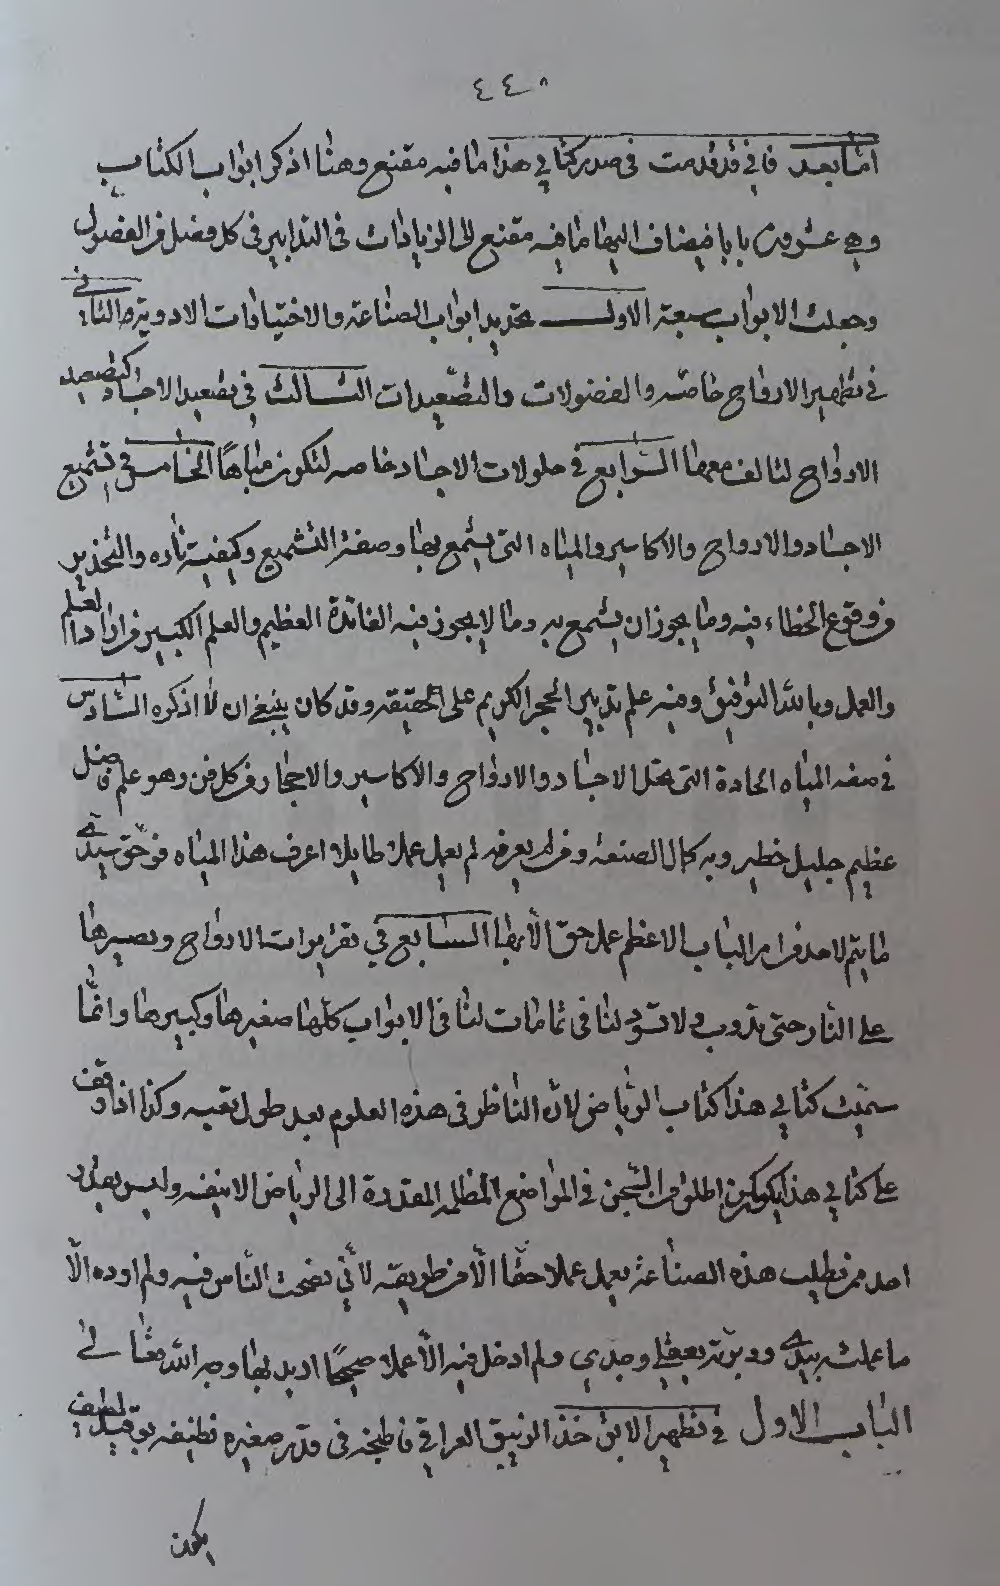 ٤٤٠
امّا بعد فاني قد قدمت في صدر كتابي هذا ما فيه مقنع وهنا اذكر ابواب الكتاب
وهي عشرون بابا فيضاف اليها ما فيه مقنع الى الزيادات في التدابير في كل فصل من الفصول
وجعلت الابواب سبعة الاول تحديد ابواب الصناعة والاختيارات الادوية والثاني
في تطهير الارواح خاصّه والفضولات والتصعيدات الثالث في تصعيد الاجساد كتصعيد
الارواح لتالف معها الرابع في حلولات الاجساد خاصه لتكون مياهاً الخامس في تشميع
الاجساد والارواح والاكاسير والمياه التي يشمع بها وصفة التشميع وكيفية ناره والتحذير
من وقوع الخطاء فيه وما يجوز ان يشمع به وما لا يجوز فيه الفائدة العظيم والعلم الكبير من اراد العلم
والعمل وبالله التوفيق وفيه علم تدبير الحجر الكريم على الحقيقه وقد كان ينبغي ان لا اذكره السّادس
في صفه المياه الحادة التي تحل الاجساد والارواح والاكاسير والاحجار من كل فن وهو علم فاضل
عظيم جليل خطير وبه كمال الصنعة ومن لم يعرفه لم يعمل عملا طايلا اعرف هذا المياه فوحق سيدي
ما يتم لاحد من امر الباب الاعظم عمل حق الّا بها السابع في الارواح وتصيرها
على النار حتى تذوب ولا لنا في تمامات لنا في الابواب كلّها صغيرها وكبيرها وانّما
سمّيت كتابي هذا كتاب الرّياض لانّ الناظر في هذه العلوم بعد طول تعبه وكذا اذا وقف
على كتابي هذا يكون كمن اطلق من السّجن في المواضع المظلمه القذرة الى الرياض الانيقه وليس يقدر
احد ممن يطلب هذه الصناعة يعمل عملا حقّا الّا من طريقه لانّي نصحت النّاس فيه ولم اورده الّا
ما عملته بيدي ودبرته بعقلي وجدّي ولم ادخل فيه الّا عملا صحيحًا اريد بها وجه الله تعالى
الباب الاول في تطهير الابق خذ الزيبق العراقي فاطبخه في قدر صغيره نظيفه بوقيد لطيف
يكون